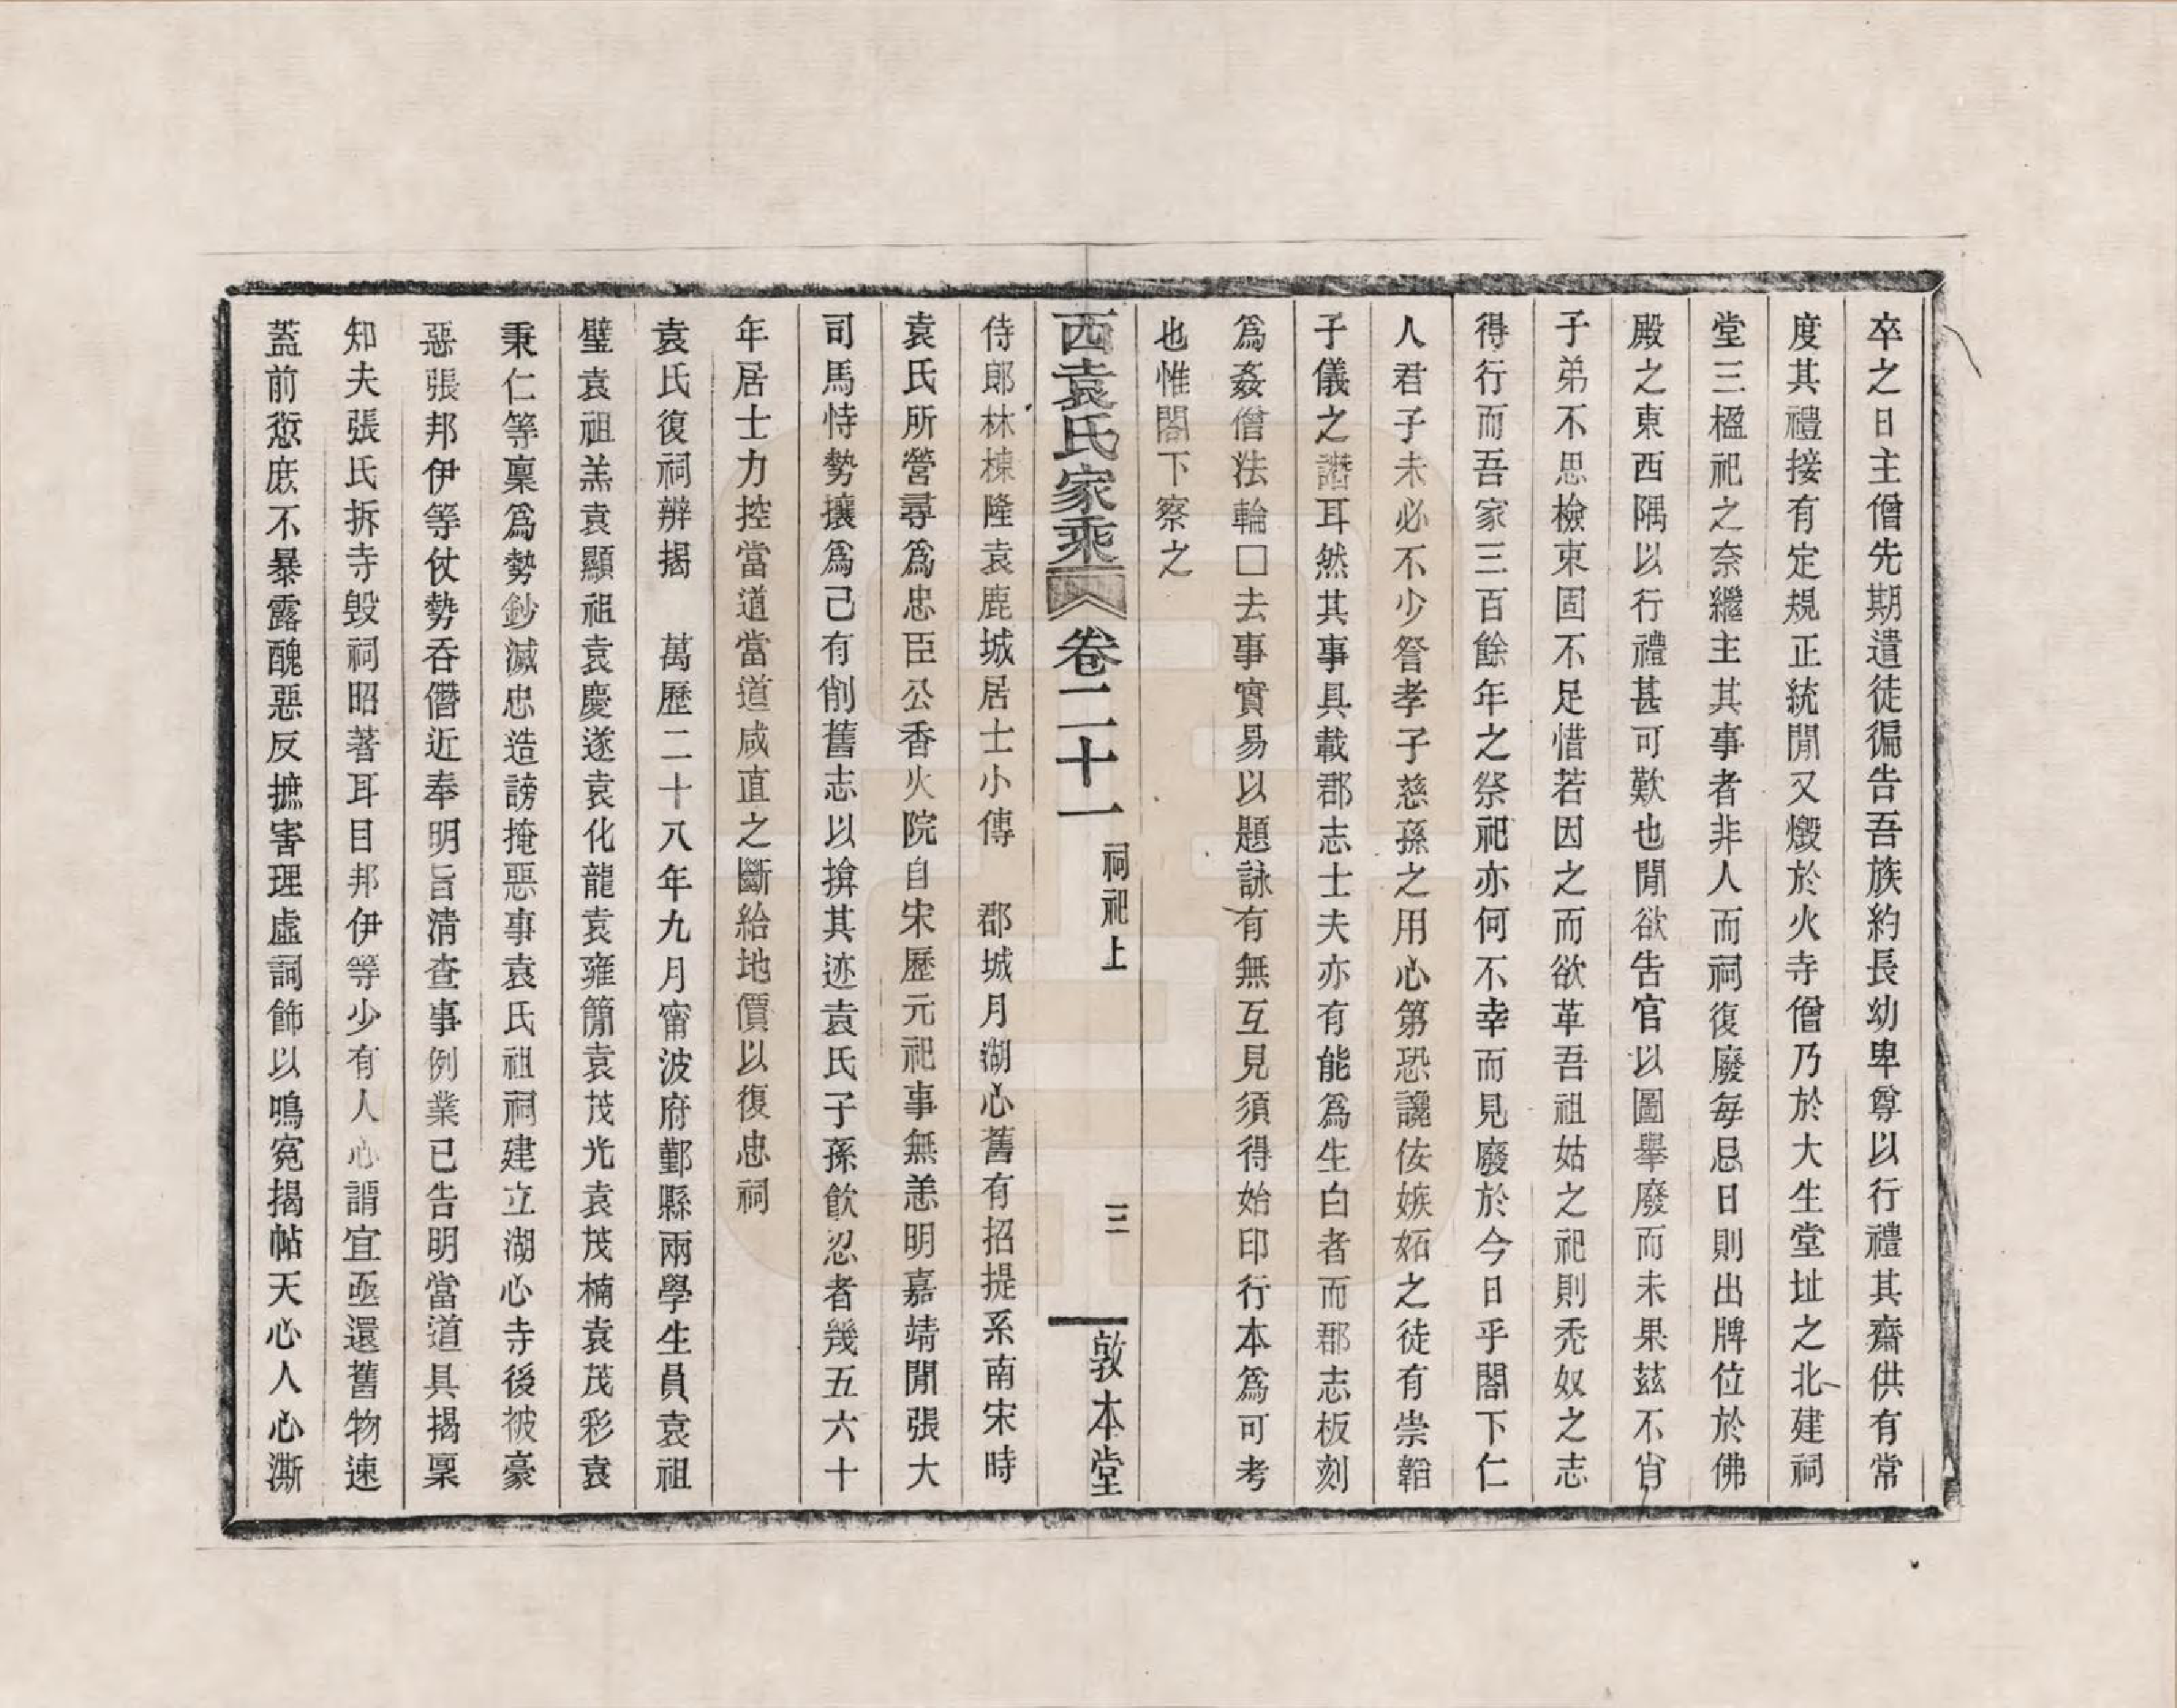 卒之日主僧先期遣徒徧告吾族約長幼卑尊以行禮其齋供有常
度其禮接有定規正統閒又燬於火寺僧乃於大生堂址之北建祠
堂三楹祀之奈繼主其事者非人而祠復廢每忌日則出牌位於佛
殿之東西隅以行禮甚可歎也閒欲告官以圖舉廢而未果茲不肖
子弟不思檢束固不足惜若因之而欲革吾祖姑之祀則禿奴之志
得行而吾家三百餘年之祭祀亦何不幸而見廢於今日乎閣下仁
人君子未必不少詧孝子慈孫之用心第恐讒佞嫉妬之徒有祟韜
子儀之譖耳然其事具載郡志士夫亦有能爲生白者而郡志板刻
爲姦僧法輪□去事實易以題詠有無互見須得始印行本爲可考
也惟閣下察之
西袁氏家乘 卷二十一 祠祀上 三 敦本堂
侍郎林棟隆袁鹿城居士小傳 郡城月湖心舊有招提系南宋時
袁氏所營尋爲忠臣公香火院自宋歷元祀事無恙明嘉靖閒張大
司馬恃勢攘爲己有削舊志以揜其迹袁氏子孫飲忍者幾五六十
年居士力控當道當道咸直之斷給地價以復忠祠
袁氏復祠辨揭 萬歷二十八年九月甯波府鄞縣兩學生員袁祖
璧袁祖羔袁顯祖袁慶遂袁化龍袁雍簡袁茂光袁茂楠袁茂彩袁
秉仁等稟爲勢鈔滅忠造謗掩惡事袁氏祖祠建立湖心寺後被豪
惡張邦伊等仗勢吞僭近奉明旨淸查事例業已告明當道具揭稟
知夫張氏拆寺毀祠昭著耳目邦伊等少有人心謂宜亟還舊物速
蓋前愆庶不暴露醜惡反摭害理虛詞飾以鳴冤揭帖天心人心澌